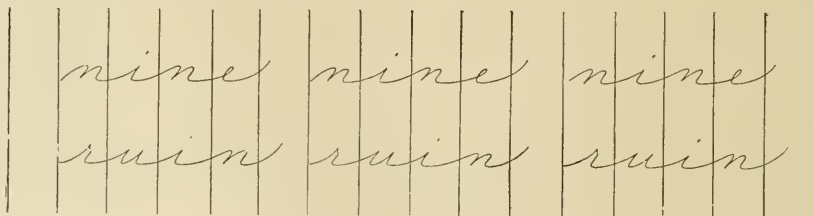 nine nine nine
ruin ruin ruin